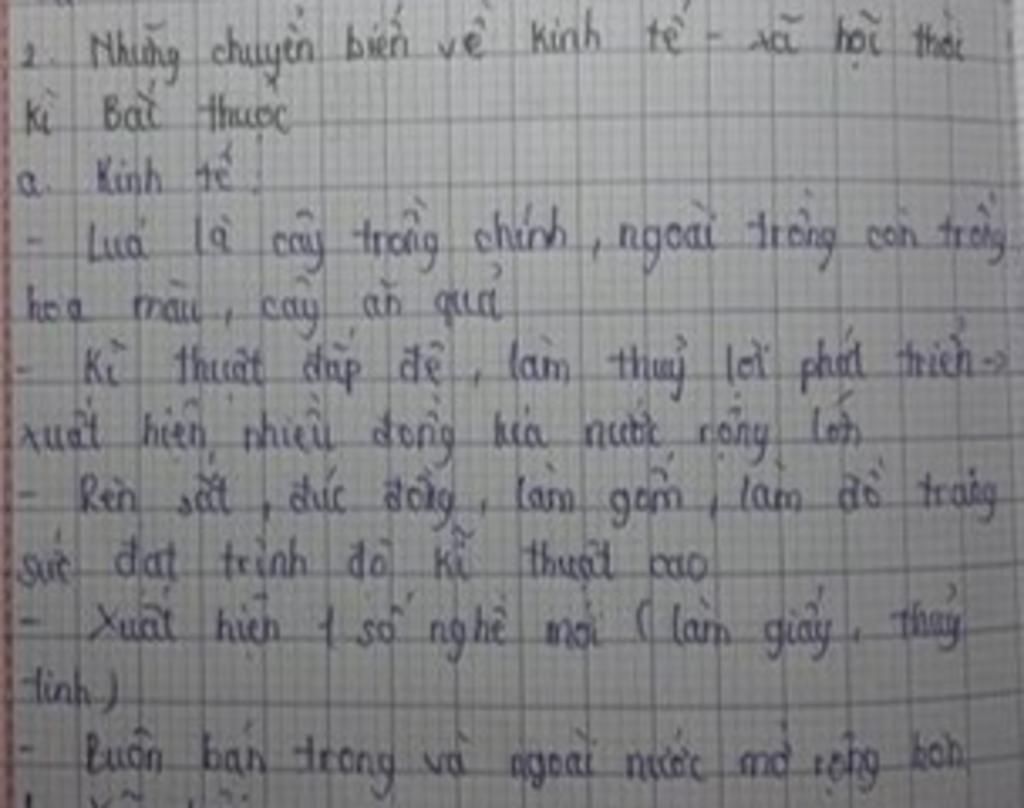 2. Những chuyển biến về kinh tế - xã hội thời
kì Bắt thuộc
a. Kinh tế:
- Luá là cây trồng chính, ngoài trồng còn trồng
hoa màu, cây ăn quả
- Kĩ thuật đắp đê, làm thuỷ lợi phát triển ->
xuất hiện nhiều đồng lúa nước rộng lớn
- Rèn sắt, đúc đồng, làm gốm, làm đồ trang
sức đạt trình độ kĩ thuật cao
- Xuất hiện 1 số nghề mới (làm giấy, thuỷ
tinh)
- Buôn bán trong và ngoài nước mở rộng hơn